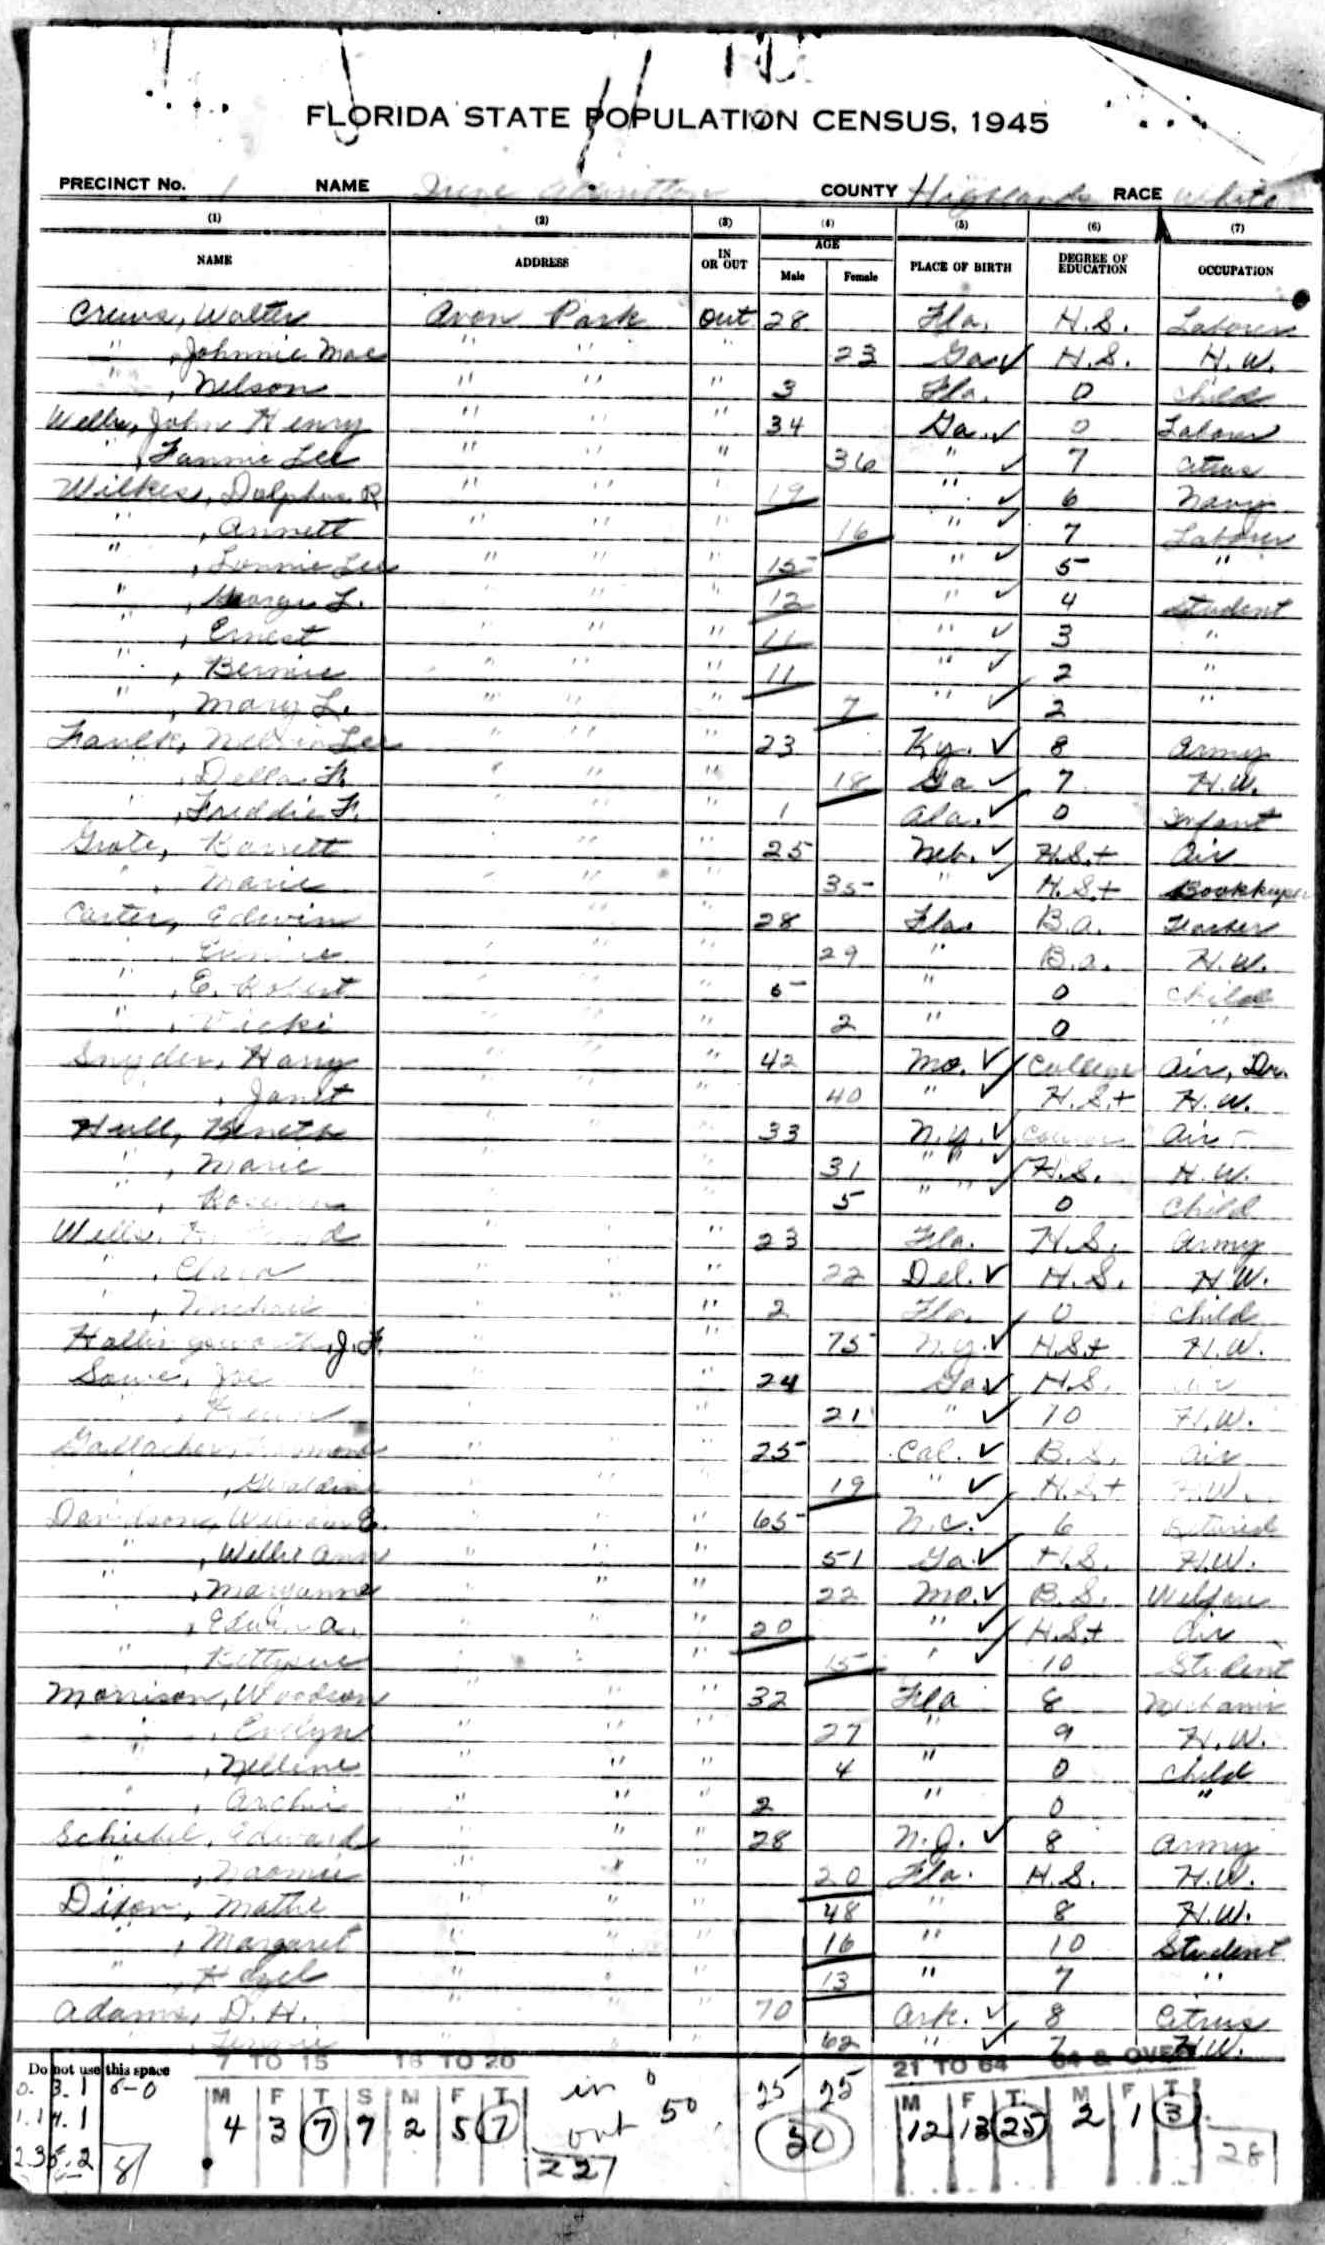 FLORIDA STATE POPULATION CENSUS, 1945
PRECINCT No. 1 NAME Irene Albritton COUNTY Highlands RACE White
(1) (2) (3) (4) (5) (6) (7)
NAME ADDRESS IN OR OUT AGE Male Female PLACE OF BIRTH DEGREE OF EDUCATION OCCUPATION
Crews, Walter Avon Park Out 28 Fla. H.S. Laborer
" , Johnnie Mae " " " 23 Ga ✓ H.S. H.W.
" , Nelson " " " 3 Fla. 0 Child
John Henry " " " 34 Ga. ✓ 0 Laborer
" , Fannie Lee " " " 36 " ✓ 7 Citrus
Wilkes, Dolphus R " " " 19 " ✓ 6 Navy
" , Annett " " " 16 " ✓ 7 Laborer
" , Lonnie Lee " " " 15 " ✓ 5 "
" , George L. " " " 12 " ✓ 4 Student
" , Ernest " " " 11 " ✓ 3 "
" , Bernie " " " 11 " ✓ 2 "
" , Mary L. " " " 7 " ✓ 2 "
Faulk, Melvin Lee " " " 23 Ky. ✓ 8 Army
" , Della F. " " " 18 Ga ✓ 7 H.W.
" , Freddie F. " " " 1 Ala. ✓ 0 Infant
Grote, Barrett " " " 25 Neb. ✓ H.S.+ Air
" , Marie " " " 35 " ✓ H.S.+ Bookkeeper
Carter, Edwin " " " 28 Fla. B.A.
" , Eunice " " " 29 " B.A. H.W.
" , E. Robert " " " 5 " 0 Child
" , Vicki " " " 2 " 0 "
Snyder, Harry " " " 42 Mo. ✓ College Air, Dr.
" , Janet " " " 40 " ✓ H.S.+ H.W.
Hull, " " " 33 N.Y. ✓ Air
" , Marie " " " 31 " " ✓ H.S. H.W.
" , " " " 5 " " ✓ 0 Child
Wells, " " " 23 Fla. H.S. Army
" , Clara " " " 22 Del. ✓ H.S. H.W.
" , " " " 2 Fla. 0 Child
Hollingsworth, J. F. " " " 75 N.Y. ✓ H.S.+ H.W.
Joe " " " 24 Ga ✓ H.S. Air
" , " " " 21 " ✓ 10 H.W.
Gallacher, " " " 25 Cal. ✓ B.S. Air
" , " " " 19 " ✓ H.S.+ H.W.
Davidson, William E. " " " 65 N.C. ✓ 6 Retired
" , Willie Ann " " " 51 Ga ✓ H.S. H.W.
" , Maryanna " " " 22 Mo. ✓ B.S. Welfare
" , Edwin A. " " " 20 " ✓ H.S.+ Air
" , Bettysue " " " 15 " ✓ 10 Student
Morrison, Woodson " " " 32 Fla 8 Mechanic
" , Evelyn " " " 27 " 9 H.W.
" , Nelline " " " 4 " 0 Child
" , Archie " " " 2 " 0 "
Schiebel, Edward " " " 28 N.J. ✓ 8 Army
" , Naomie " " " 20 Fla. H.S. H.W.
Dixon, Mattie " " " 48 " 8 H.W.
" , Margaret " " " 16 " 10 Student
" , Hazel " " " 13 " 7 "
Adams, D. H. " " " 70 Ark. ✓ 8 Citrus
" , " " " 62 " ✓ 7 H.W.
Do not use this space 7 TO 15 16 TO 20 21 TO 64 64 & OVER
0. 3. 1 6-0 M F T S M F T in 0 50 25 25 M F T. M F T
1.1 4.1 4 3 7 9 2 5 7 out 50 12 13 25 2 1 3
2.3 5.2 8 22 28